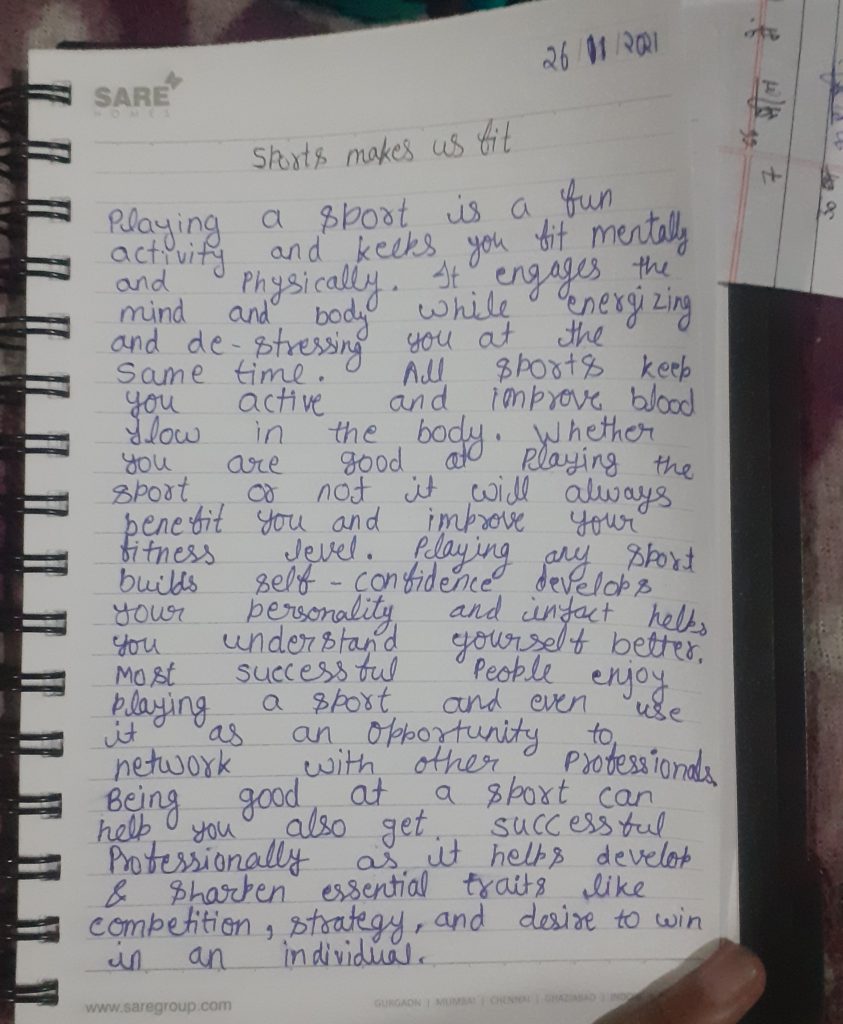 26/11/2021
SARE
HOMES
Sports makes us fit
Playing a sport is a fun
activity and keeps you fit mentally
and Physically. It engages the
mind and body while energizing
and de-stressing you at the
same time. All sports keep
you active and improve blood
flow in the body. Whether
you are good at Playing the
sport or not it will always
benefit you and improve your
fitness level. Playing any sport
builds self-confidence develops
your personality and infact helps
you understand yourself better.
Most successful People enjoy
playing a sport and even use
it as an opportunity to
network with other Professionals
Being good at a sport can
help you also get successful
Professionally as it helps develop
& sharpen essential traits like
competition, strategy, and desire to win
in an individual.
www.saregroup.com
GURGAON | MUMBAI | CHENNAI | GHAZIABAD |